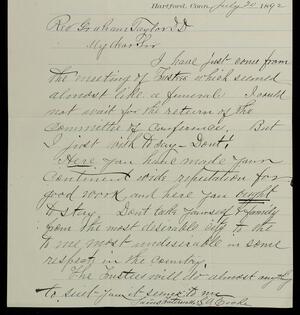 Hartford, Conn., July 20 1892
Rev Graham Taylor D.D
My dear Sir
I have just come from
the meeting of Trustees which seemed
almost like a funeral. I could
not wait for the return of the
Committee of Conference. But
I just wish to say - Don't!
Here you have made your
continent wide reputation for
good work and here you ought
to stay. Don't take yourself & family
from the most desirable city to the
to me, most undesirable in some
respect in the Country.
The Trustees will do almost anything
to suit you it seems to me